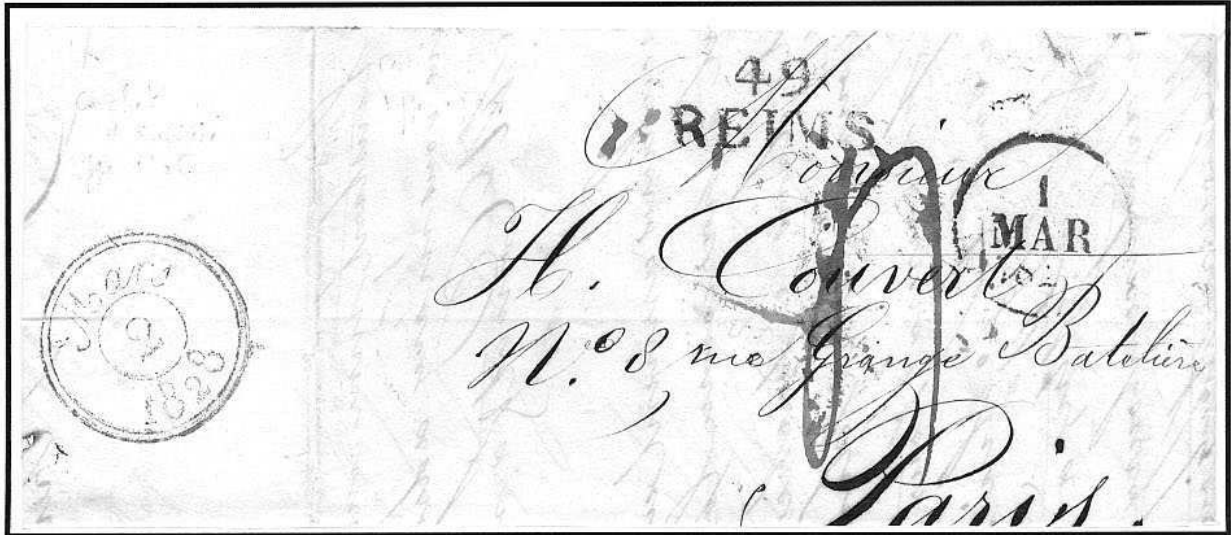 49
REIMS
Monsieur
1
MAR
H. Couvert
N.º 8 rue Grange Batelière
Paris.
Mars
2
1828